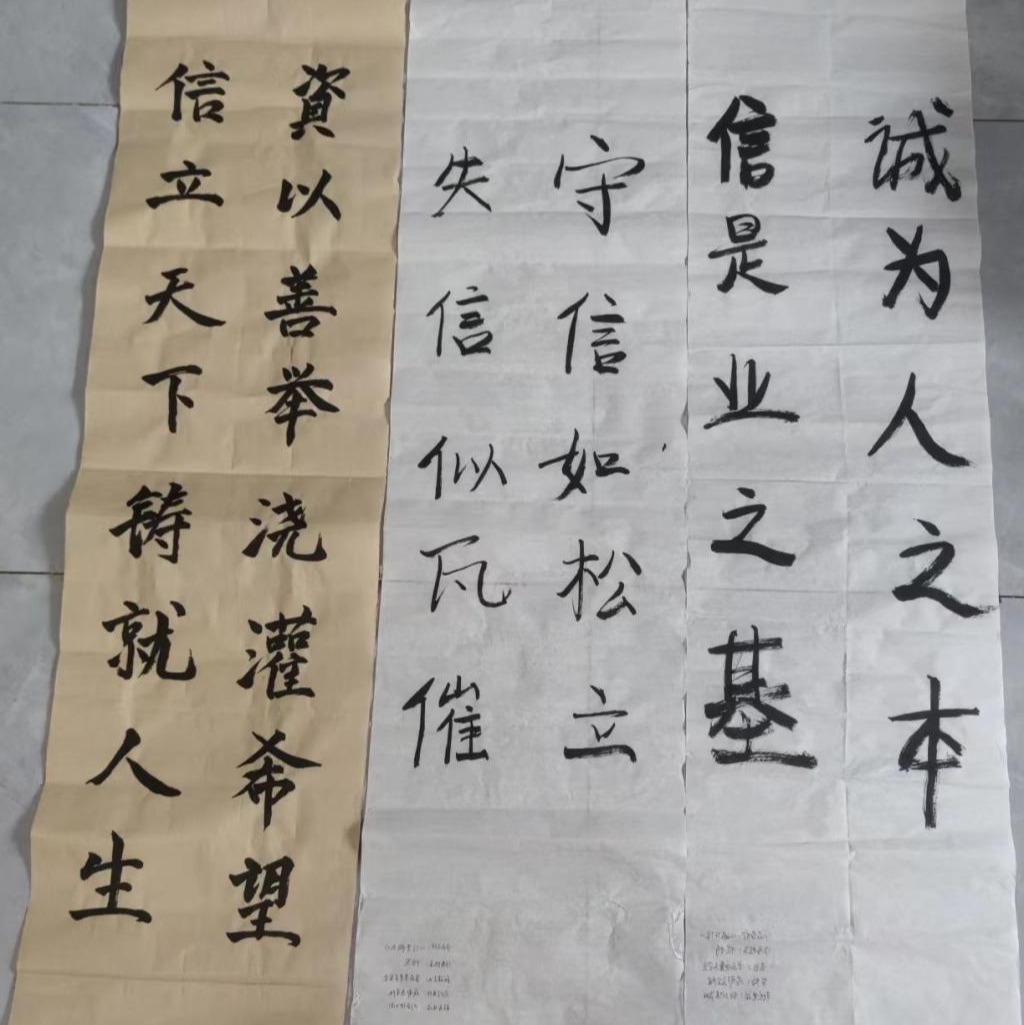 诚为人之本
信是业之基
守信如松立
失信似瓦催
資以善举浇灌希望
信立天下铸就人生